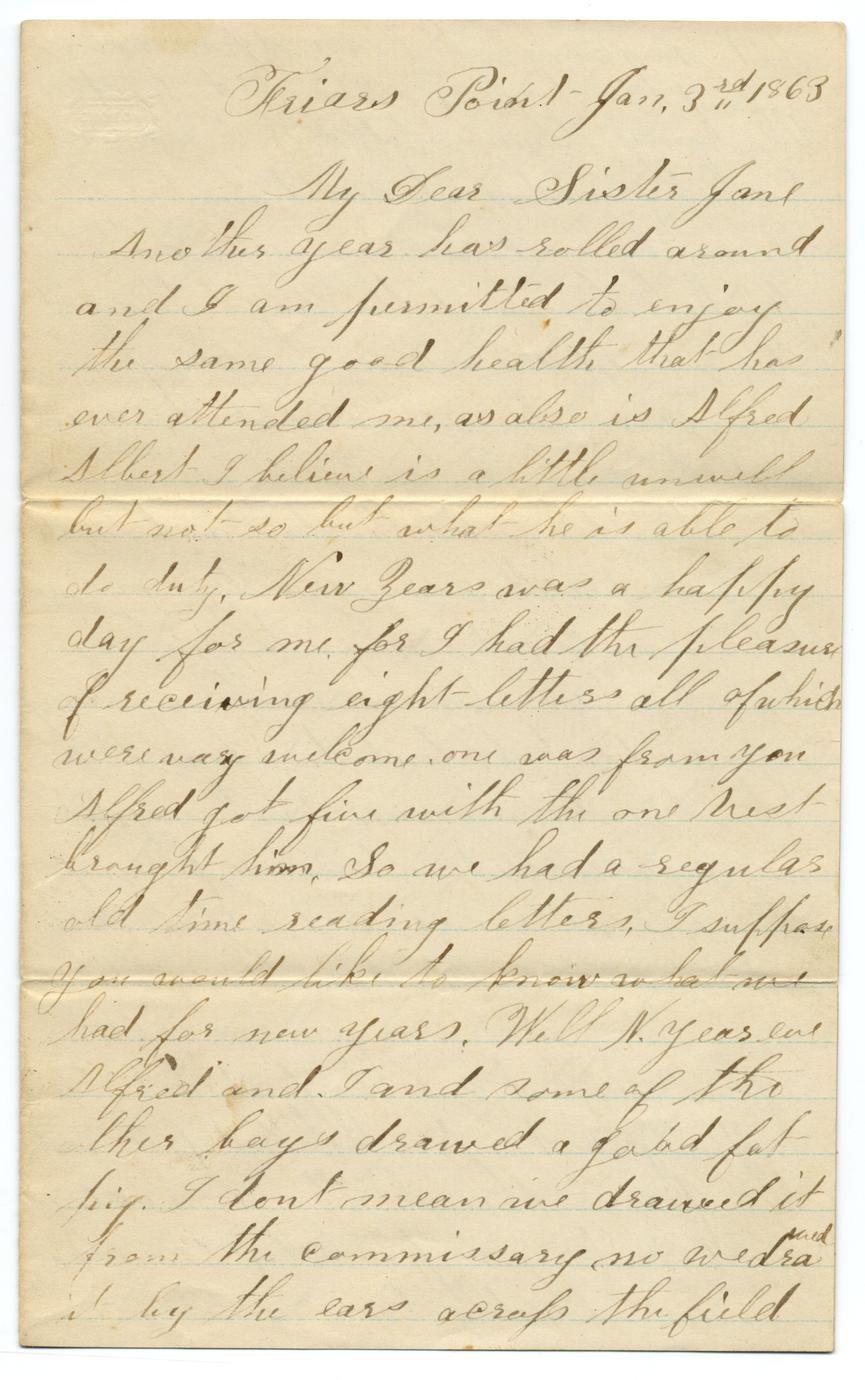 Friars Point Jan, 3rd 1863
My Dear Sister Jane
Another year has rolled around
and I am permitted to enjoy
the same good health that has
ever attended me, as also is Alfred
Albert I believe is a little unwell
but not so but what he is able to
do duty, New Years was a happy
day for me, for I had the pleasure
of receiving eight letters all of which
were vary welcome. one was from you
Alfred got five with the one West
brought him, So we had a regular
old time reading letters, I suppose
you would like to know what we
had for new years, Well N. Year eve
Alfred and I and some of the
ther boys drawed a good fat
pig. I dont mean we drawed it
from the commissary no we drawed
it by the ears across the field